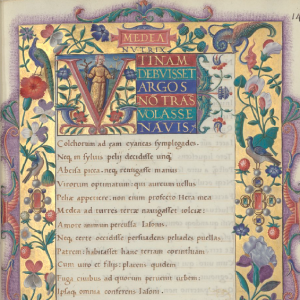 MEDEA
NVTRIX
V
TINAM
DEBVISSET
ARGOS
NO TRAS
VOLASSE
NAVIS
Colchorum ad eam cyaneas symplegades.
Neq, in sylvis pelij decidisse unq̃
Abscisa picea, neq, remigasse manus
Virorum optimatum: qui aureum vellus
Peliæ appetiere. non enim profecto Hera mea
Medea ad turres terræ navigasset iolciæ:
Amore animum perculsa Iasonis.
Neq, certe occidisse persuadens peliades puellas
Patrem habitaret hanc terram corinthiam
Cum viro et filijs: placens quidem
Fuga civibus ad quorum pervenit urbem:
Ipsaq, omnia conferens Iasoni.